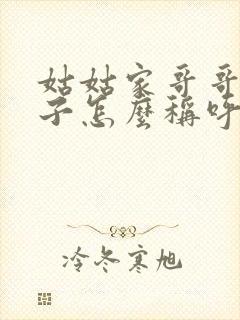 姑姑家哥哥
子怎麼稱呼
冷冬寒旭